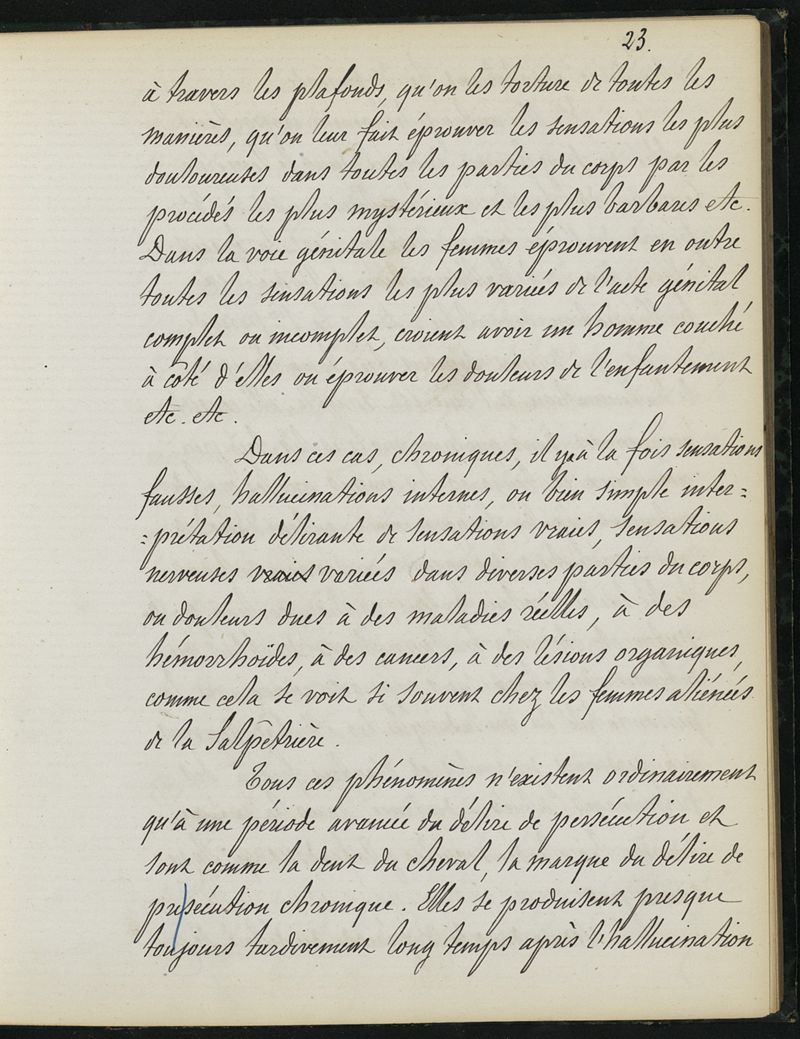 23.
à travers les plafonds, qu'on les torture de toutes les
manières, qu'on leur fait éprouver les sensations les plus
douloureuses dans toutes les parties du corps par les
procédés les plus mystérieux et les plus barbares etc.
Dans la voie génitale les femmes éprouvent en outre
toutes les sensations les plus variées de l'acte génital
complet ou incomplet, croient avoir un homme couché
à côté d'elles ou éprouver les douleurs de l'enfantement
etc. etc.
Dans ces cas, chroniques, il y a à la fois sensations
fausses, hallucinations internes, ou bien simple inter=
=prétation délirante de sensations vraies, sensations
nerveuses vraies variées dans diverses parties du corps,
ou douleurs dues à des maladies réelles, à des
hémorrhoïdes, à des cancers, à des lésions organiques,
comme cela se voit si souvent chez les femmes aliénées
de la Salpêtrière.
Tous ces phénomènes n'existent ordinairement
qu'à une période avancée du délire de persécution et
sont comme la dent du cheval, la marque du délire de
presécution chronique. Elles se produisent presque
toujours tardivement long temps après l'hallucination